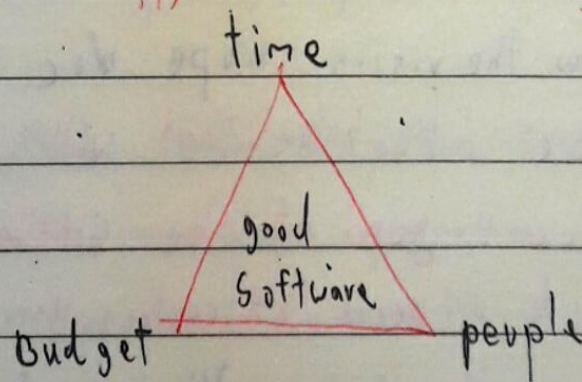 time
good
Software
Budget people